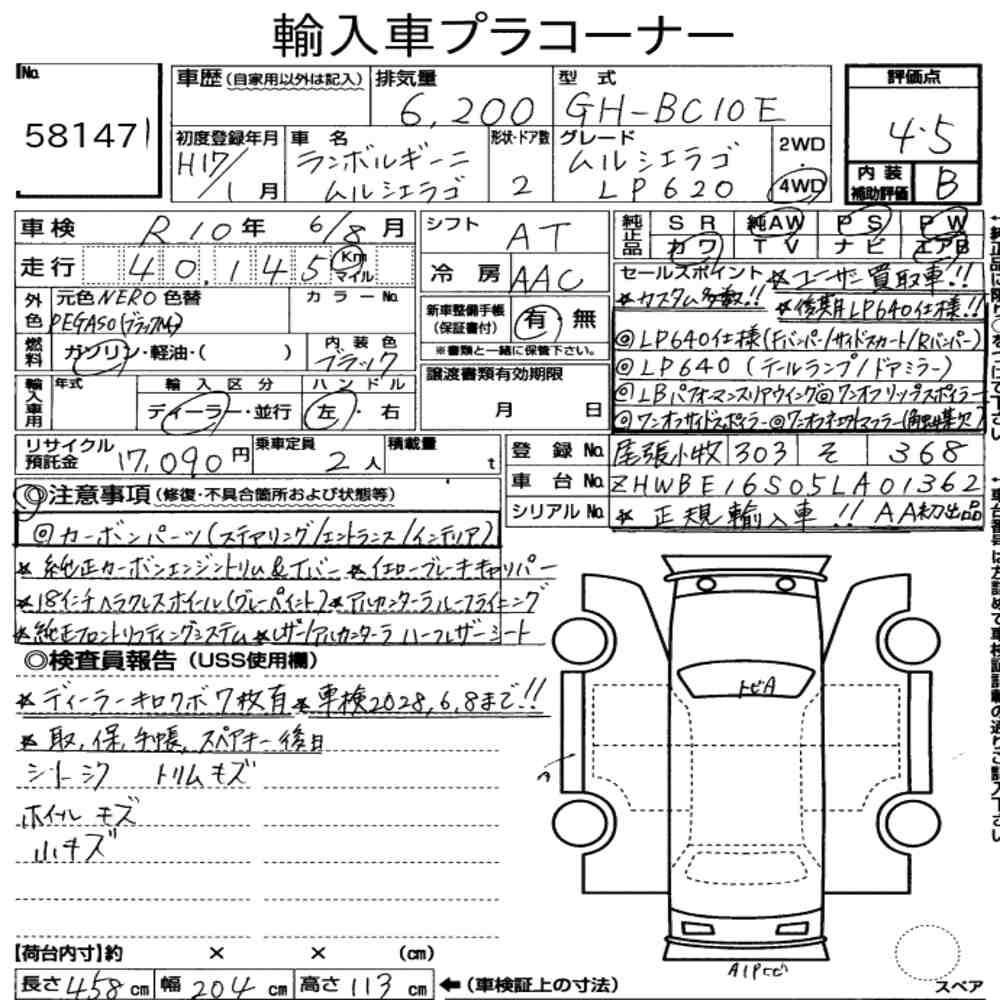 輸入車プラコーナー
No.
58147
車歴(自家用以外は記入)
排気量 6,200
型式 GH-BC10E
評価点 4.5
初度登録年月 H17/1月
車名 ランボルギーニ ムルシエラゴ
形状・ドア数 2
グレード ムルシエラゴ LP620
2WD・4WD
内装補助評価 B
車検 R10年 6/8月
シフト AT
純正品 SR 純AW PS PW
カワ TV ナビ エアB
走行 40,145 Km マイル
冷房 AAC
セールスポイント ★ユーザー買取車!!
★カスタム多数!! ★後期LP640仕様!!
外色 元色NERO 色替 カラーNo.
PEGASO(ブラックM)
新車整備手帳(保証書付) 有・無
※書類と一緒に保管下さい。
◎LP640仕様(Fバンパー/サイドスカート/Rバンパー)
燃料 ガソリン・軽油・( ) 内装色 ブラック
◎LP640(テールランプ/ドアミラー)
輸入車用 年式 輸入区分 ハンドル
ディーラー・並行 左・右
譲渡書類有効期限
月 日
◎LBパフォーマンスリアウイング◎ワンオフリップスポイラー
◎ワンオフサイドスポイラー◎ワンオフ
リサイクル預託金 17,090円 乗車定員 2人 積載量 t
登録No. 尾張小牧 303 そ 368
車台No. ZHWBE16S05LA01362
シリアルNo. ★正規輸入車!! AA初出品
◎注意事項(修復・不具合箇所および状態等)
◎カーボンパーツ(ステアリング/エントランス/インテリア)
★純正カーボンエンジントリム&Tバー ★イエローブレーキキャリパー
★18インチヘラクレスホイール(グレーペイント)★アルカンターラルーフライニング
★純正フロントリフティングシステム ★レザー/アルカンターラ ハーフレザーシート
◎検査員報告(USS使用欄)
★ディーラーキロクボ7枚有 ★車検2028,6,8まで!!
★取,保,手帳,スペアキー後日
シートシワ トリムキズ
ホイールキズ
小キズ
トビA
A1Pヒビ
【荷台内寸】約 × × (cm)
長さ 458cm 幅 204cm 高さ 113cm ←(車検証上の寸法)
スペア